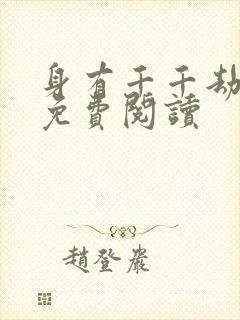 身有千千劫
免費閱讀
趙登巖